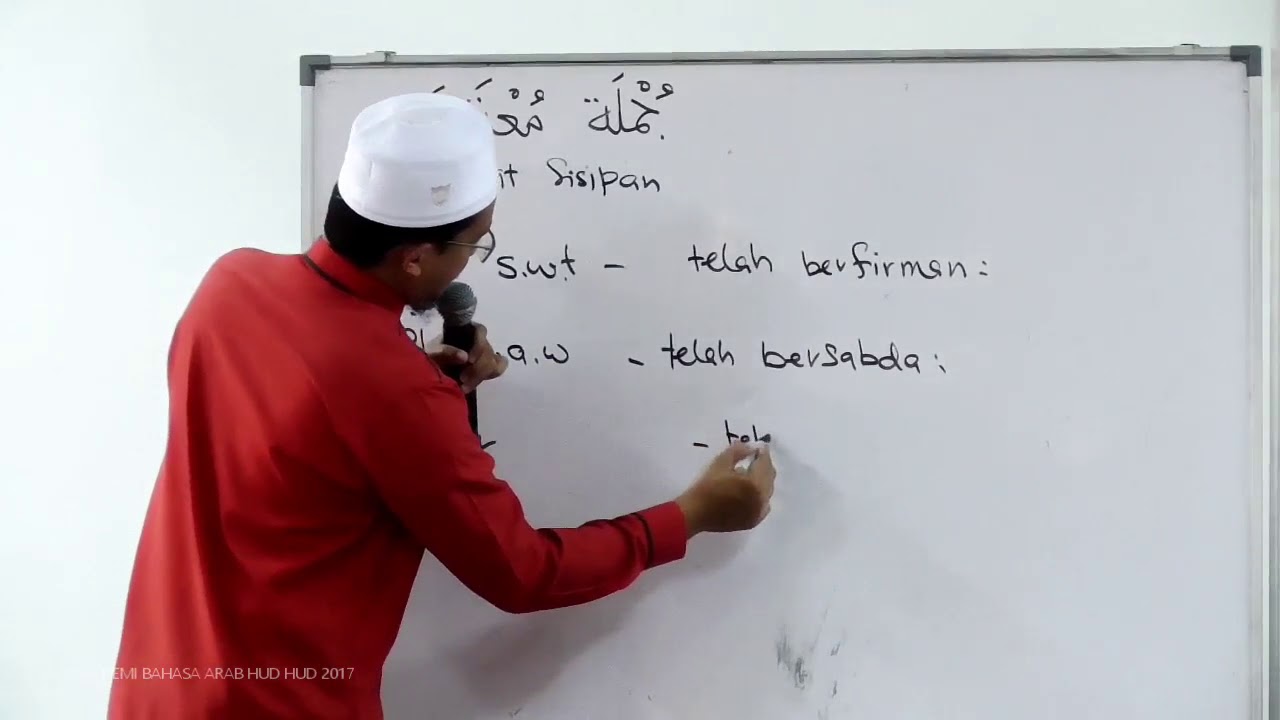 جُمْلَة
Sisipan
s.w.t - telah berfirman:
a.w - telah bersabda:
-
BAHASA ARAB HUD HUD 2017